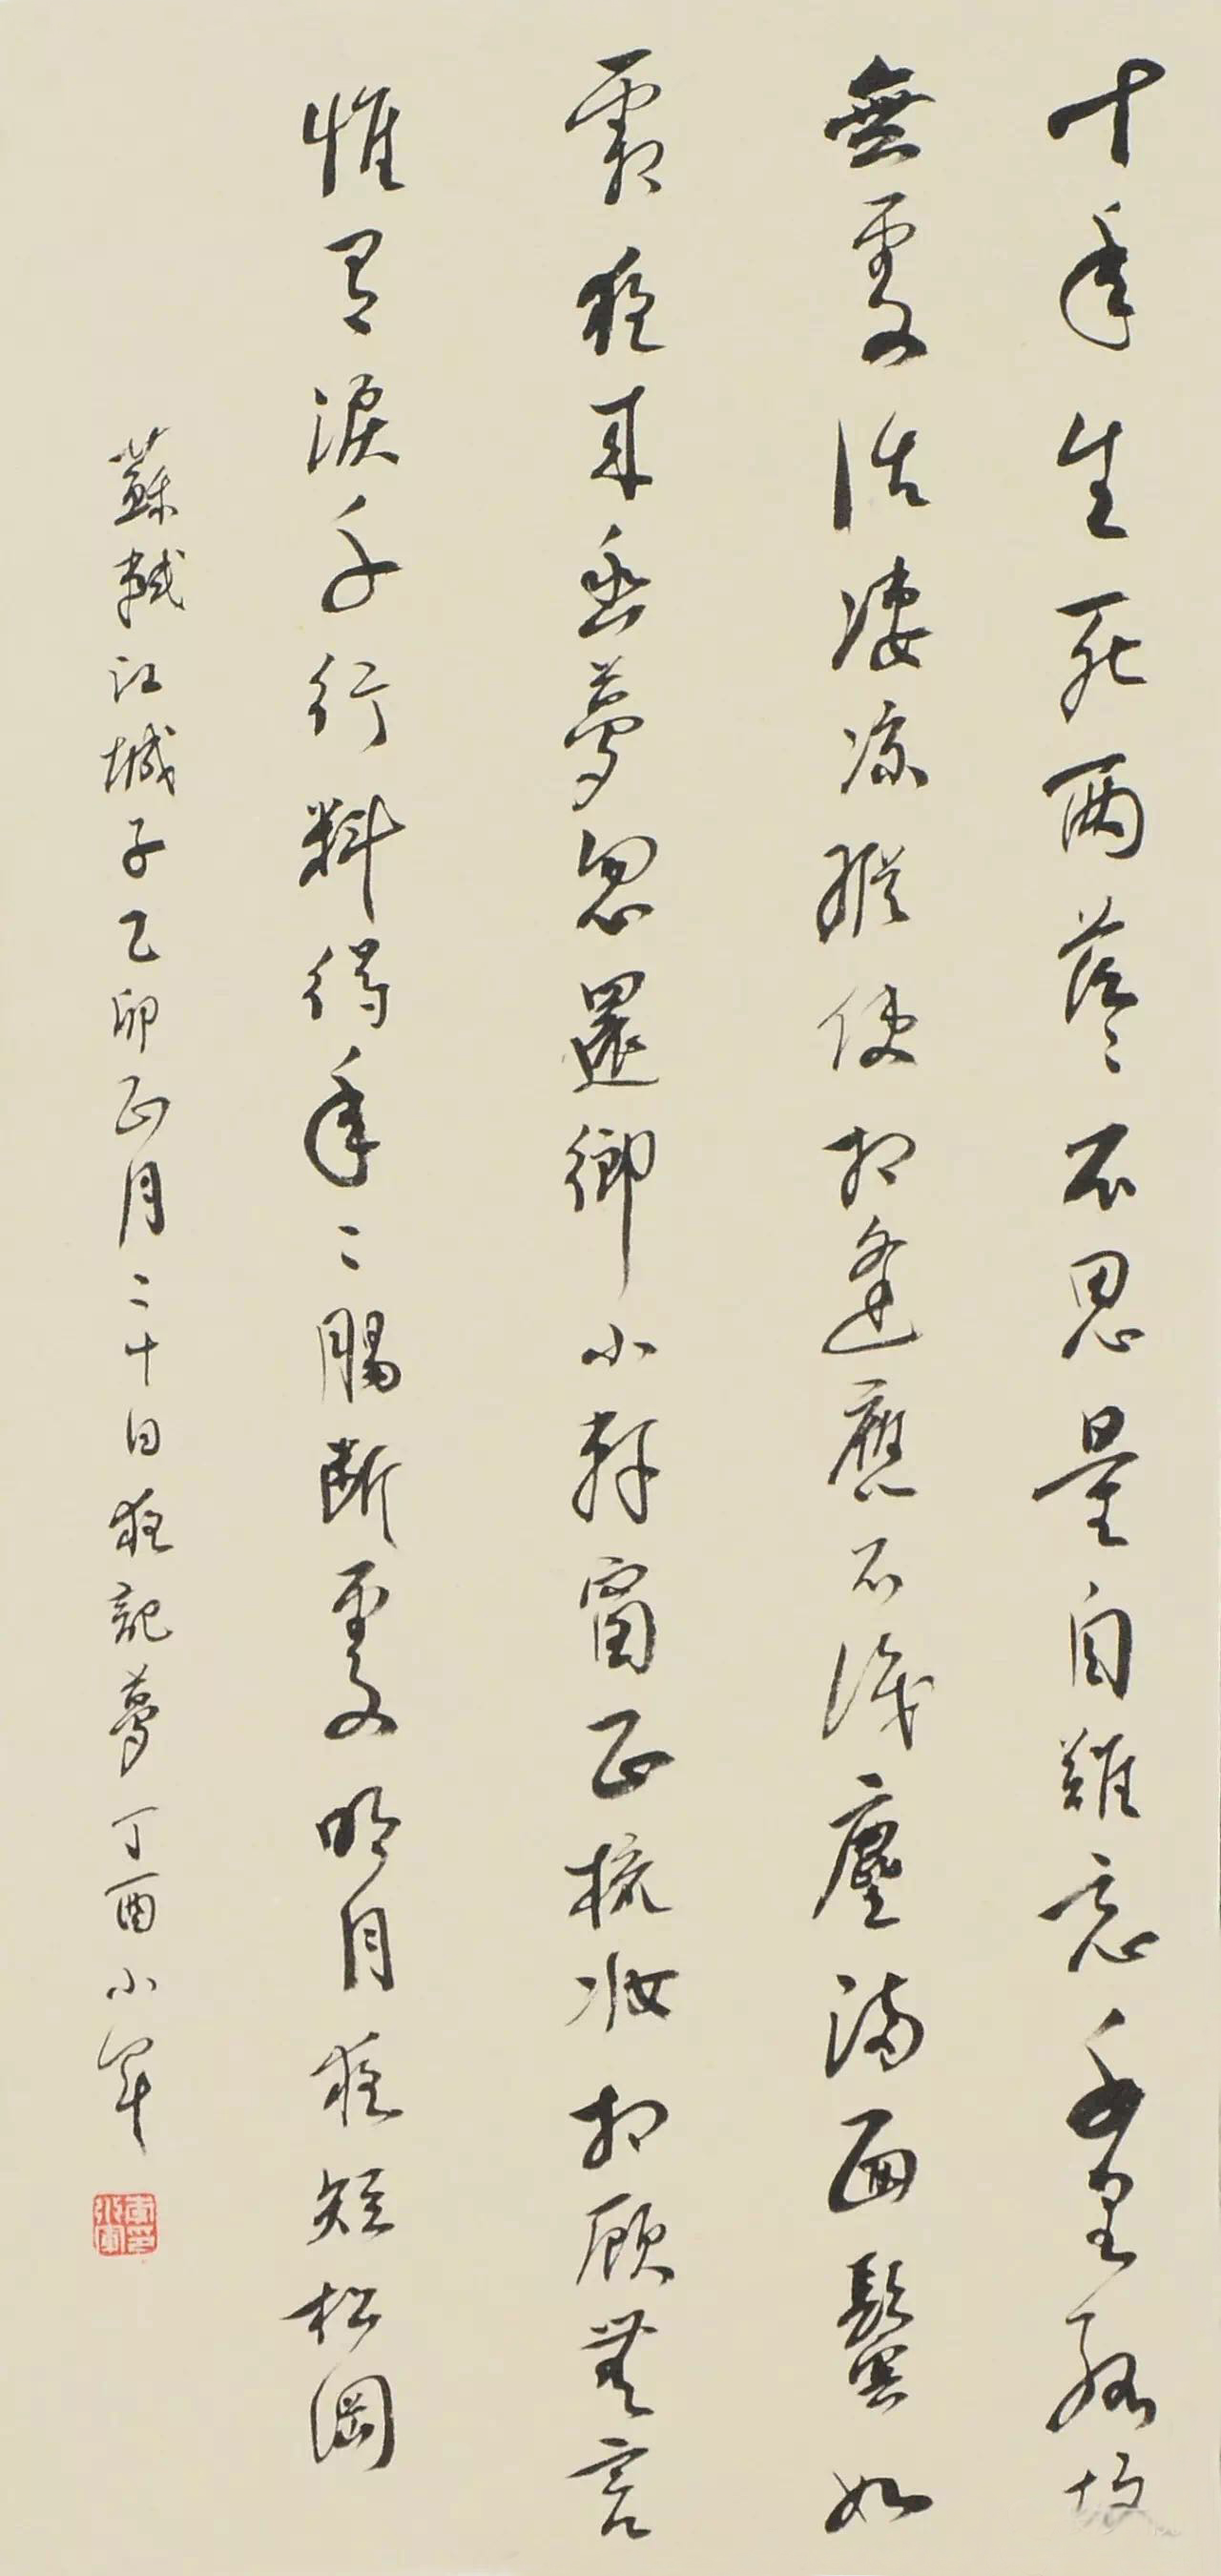 十年生死兩茫〻不思量自難忘千里孤坟
無處話凄凉縱使相逢應不識塵滿面鬢如
霜夜來幽夢忽還鄉小軒窗正梳妝相顧無言
惟有淚千行料得年〻腸斷處明月夜短松岡
蘇軾江城子乙卯正月二十日夜記夢丁酉小軍